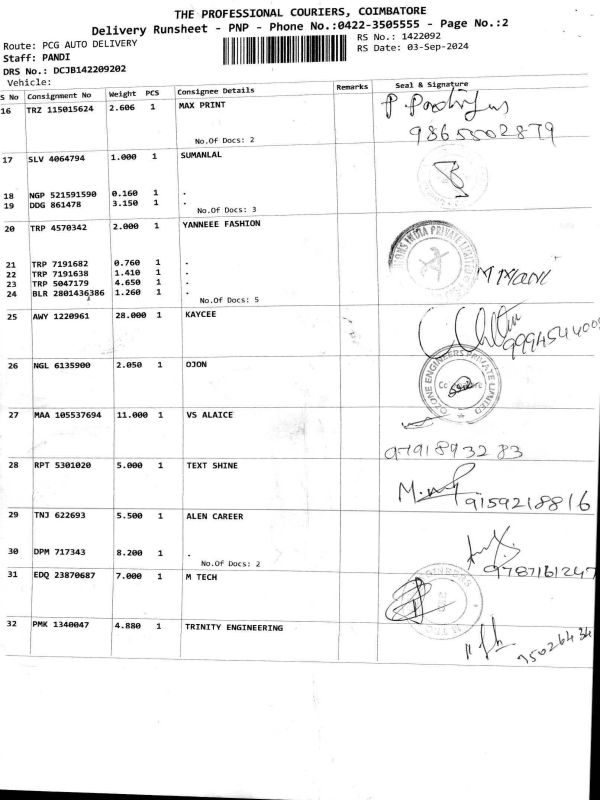 THE PROFESSIONAL COURIERS, COIMBATORE
Delivery Runsheet - PNP - Phone No.:0422-3505555 - Page No.:2
Route: PCG AUTO DELIVERY
RS No.: 1422092
Staff: PANDI
RS Date: 03-Sep-2024
DRS No.: DCJB142209202
Vehicle:
S No Consignment No Weight PCS Consignee Details Remarks Seal & Signature
16 TRZ 115015624 2.606 1 MAX PRINT
9865502879
No.Of Docs: 2
17 SLV 4064794 1.000 1 SUMANLAL
18 NGP 521591590 0.160 1 .
19 DDG 861478 3.150 1 .
No.Of Docs: 3
20 TRP 4570342 2.000 1 YANNEEE FASHION
INDIA PRIVATE LIMITED
21 TRP 7191682 0.760 1 .
22 TRP 7191638 1.410 1 .
M Mani
23 TRP 5047179 4.650 1 .
24 BLR 2801436386 1.260 1 .
No.Of Docs: 5
25 AWY 1220961 28.000 1 KAYCEE
26 NGL 6135900 2.050 1 OJON
OZONE ENGINEERS PRIVATE LIMITED
27 MAA 105537694 11.000 1 VS ALAICE
9791893283
28 RPT 5301020 5.000 1 TEXT SHINE
9159218816
29 TNJ 622693 5.500 1 ALEN CAREER
30 DPM 717343 8.200 1 .
No.Of Docs: 2
9787161247
31 EDQ 23870687 7.000 1 M TECH
32 PMK 1340047 4.880 1 TRINITY ENGINEERING